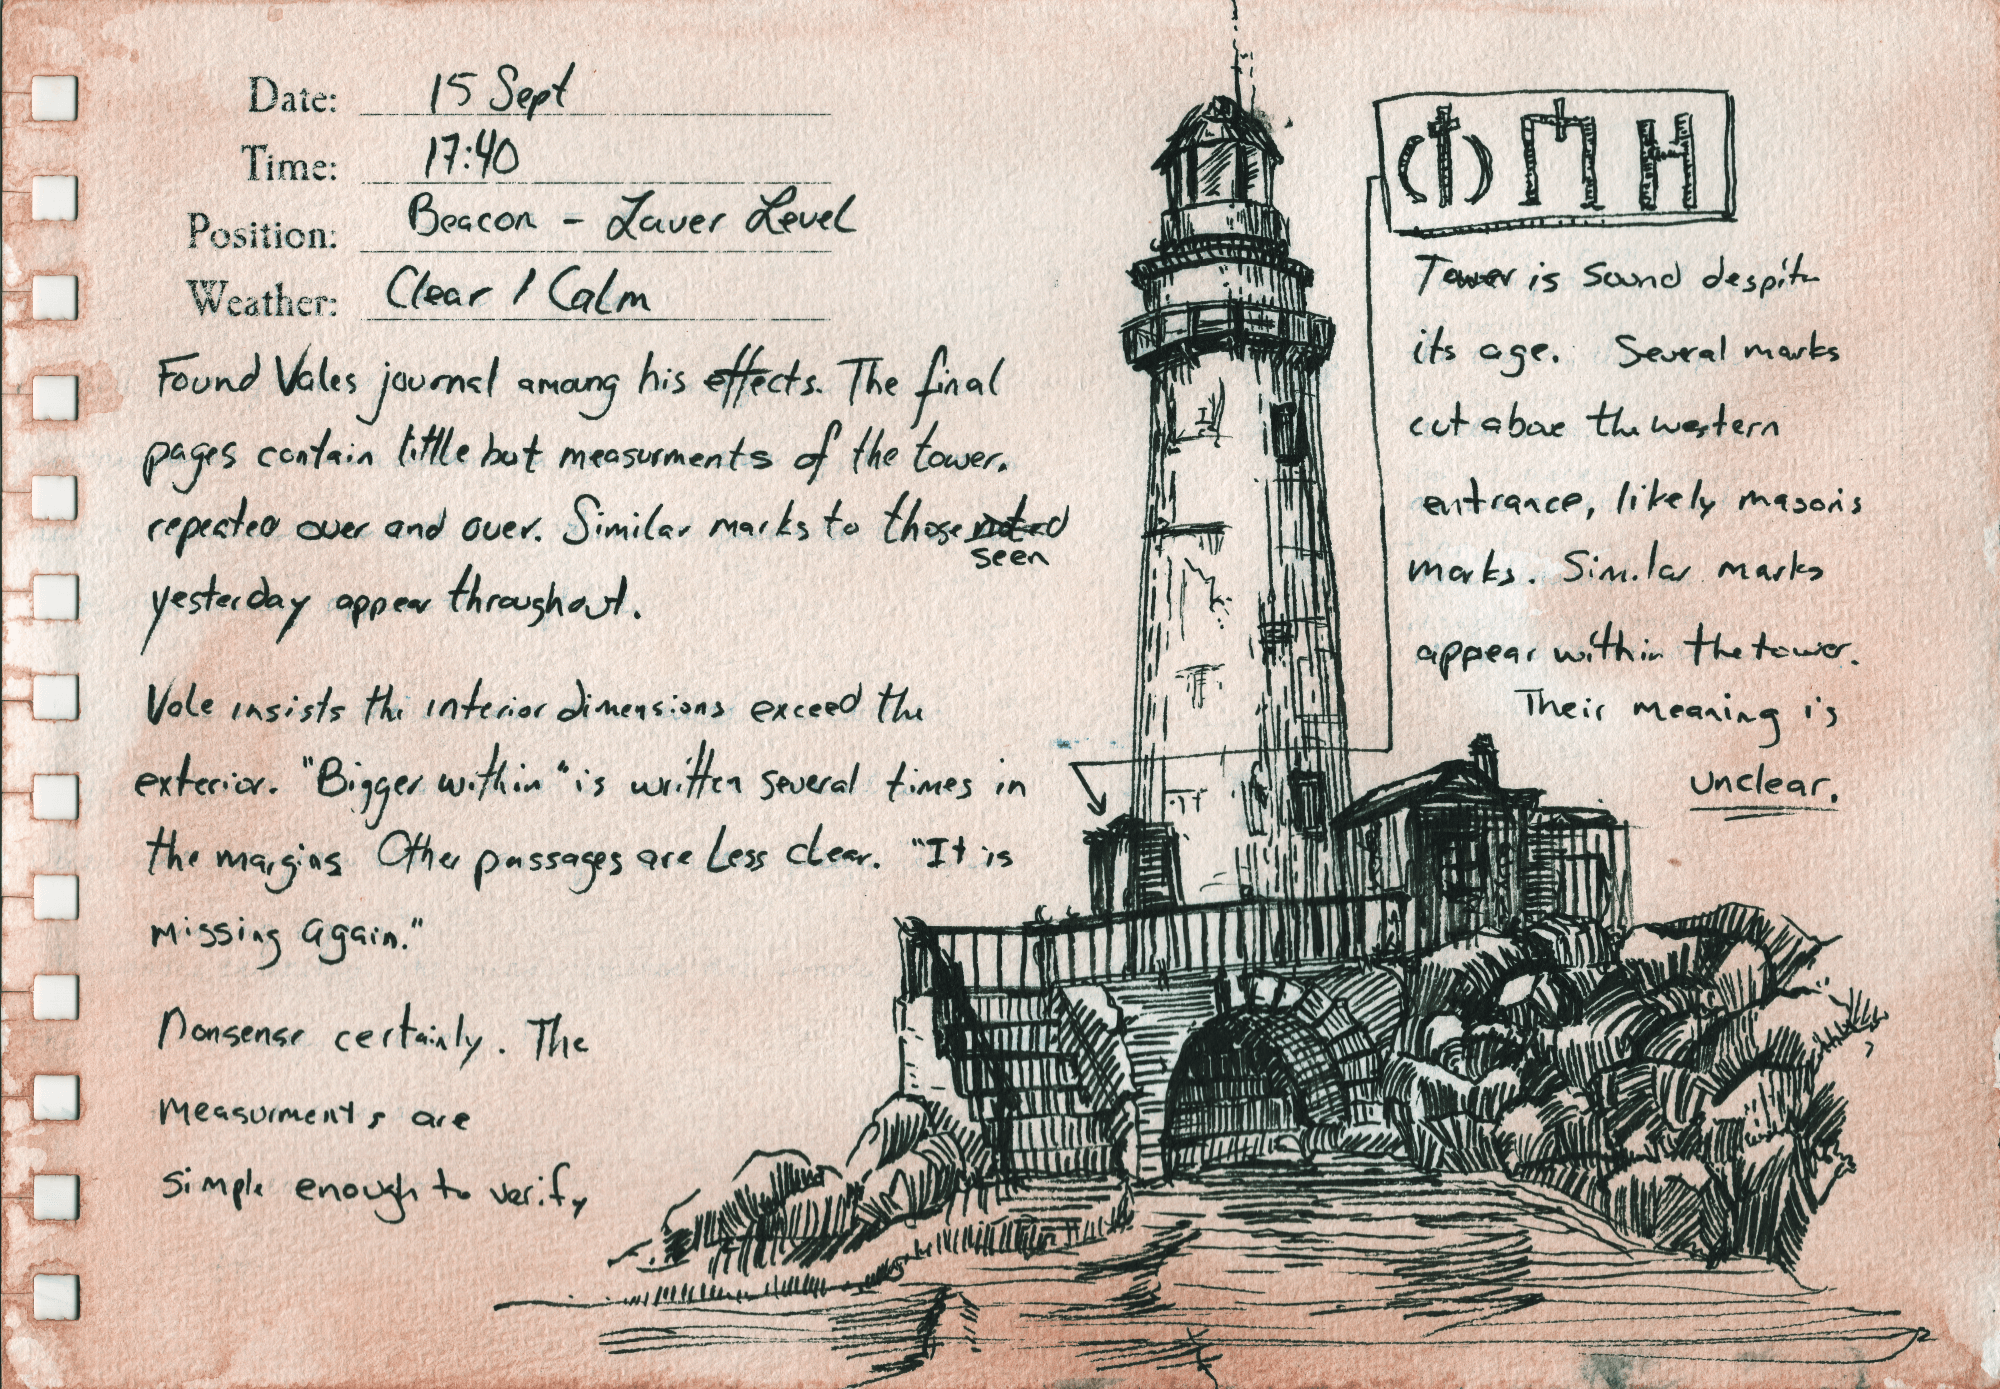 Date: 15 Sept
Time: 17:40
Position: Beacon - Lower Level
Weather: Clear / Calm
Found Vales journal among his effects. The final
pages contain little but measurments of the tower.
repeated over and over. Similar marks to those noted
seen
yesterday appear throughout.
Vale insists the interior dimensions exceed the
exterior. "Bigger within" is written several times in
the margins Other passages are less clear. "It is
missing again."
Nonsense certainly. The
measurments are
simple enough to verify
ΦΠΗ
Tower is sound despite
its age. Several marks
cut above the western
entrance, likely masons
marks. Similar marks
appear within the tower.
Their meaning is
unclear.